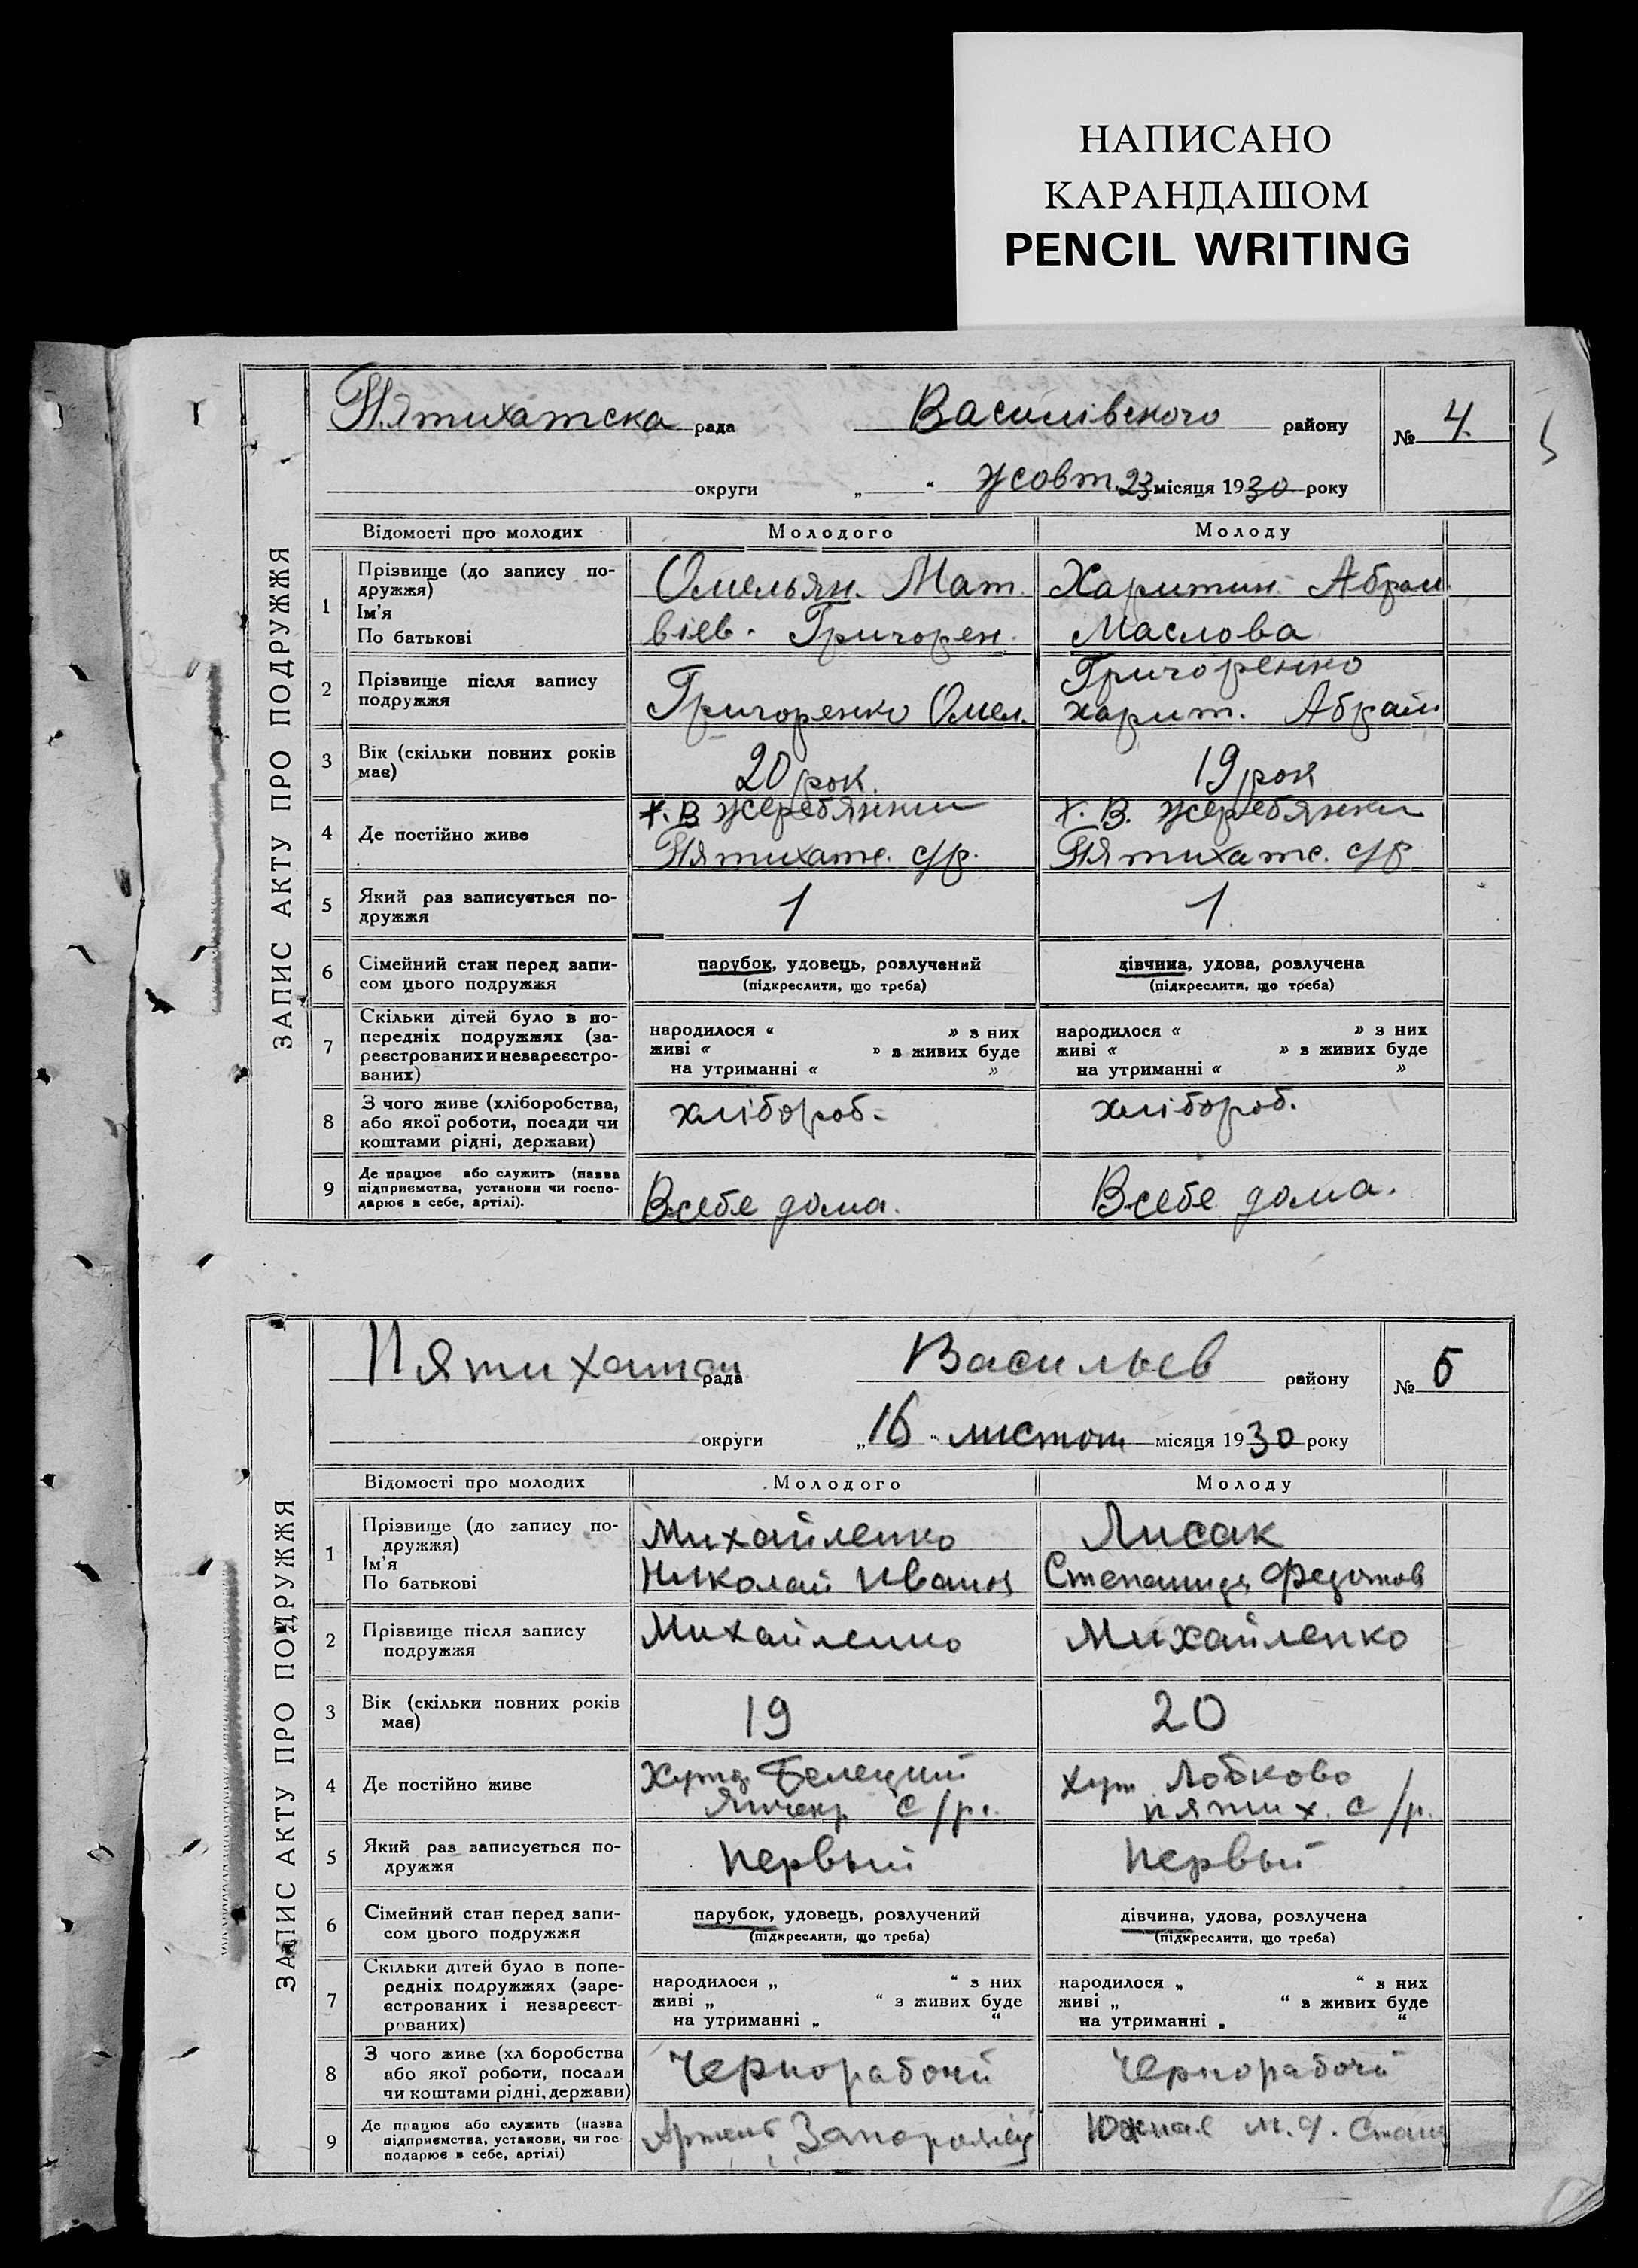 НАПИСАНО
КАРАНДАШОМ
PENCIL WRITING
ЗАПИС АКТУ ПРО ПОДРУЖЖЯ
Пятихатска рада Василівского району № 4.
округи „ “ жовт. 23 місяця 1930 року
Відомості про молодих Молодого Молоду
1 Прізвище (до запису по-
дружжя)
Ім'я
По батькові
Омельян. Мат
вієв. Григорен.
Харитин. Абрам.
Маслова
2 Прізвище після запису
подружжя
Григоренко Омел.
Григоренко
харит. Абрам
3 Вік (скільки повних років
має)
20 рок. 19 рок
4 Де постійно живе
х. В Жеребянки
Пятихатс. с/р.
х. В. Жеребянки
Пятихатс. с/р
5 Який раз записується по-
дружжя
1 1.
6 Сімейний стан перед запи-
сом цього подружжя
парубок, удовець, розлучений
(підкреслити, що треба)
дівчина, удова, розлучена
(підкреслити, що треба)
7 Скільки дітей було в по-
передніх подружжях (за-
реєстрованих и незареєстро-
ваних)
народилося « » з них
живі « » з живих буде
на утриманні « »
народилося « » з них
живі « » з живих буде
на утриманні « »
8 З чого живе (хліборобства,
або якої роботи, посади чи
коштами рідні, держави)
хлібороб. хлібороб.
9 Де працює або служить (назва
підприємства, установи чи госпо-
дарює в себе, артілі).
Всебе дома. Всебе дома.
ЗАПИС АКТУ ПРО ПОДРУЖЖЯ
Пятихатск рада Васильев району № 5
округи „16“ листоп місяця 1930 року
Відомості про молодих Молодого Молоду
1 Прізвище (до запису по-
дружжя)
Ім'я
По батькові
Михайленко
Николай Иванов
Лисак
Степанида Федотов
2 Прізвище після запису
подружжя
Михайленко Михайленко
3 Вік (скільки повних років
має)
19 20
4 Де постійно живе
Хутор Белецкий
с/р.
хут. Лобково
пятих. с/р.
5 Який раз записується по-
дружжя
первый первый
6 Сімейний стан перед запи-
сом цього подружжя
парубок, удовець, розлучений
(підкреслити, що треба)
дівчина, удова, розлучена
(підкреслити, що треба)
7 Скільки дітей було в попе-
редніх подружжях (заре-
єстрованих і незареєст-
рованих)
народилося „ “ з них
живі „ “ з живих буде
на утриманні „ “
народилося „ “ з них
живі „ “ з живих буде
на утриманні „ “
8 З чого живе (хл боробства
або якої роботи, посади
чи коштами рідні, держави)
Чернорабочий Чернорабочий
9 Де працює або служить (назва
підприємства, установи, чи гос-
подарює в себе, артілі)
Артель Запорожец
Южная М. Ф. Стан